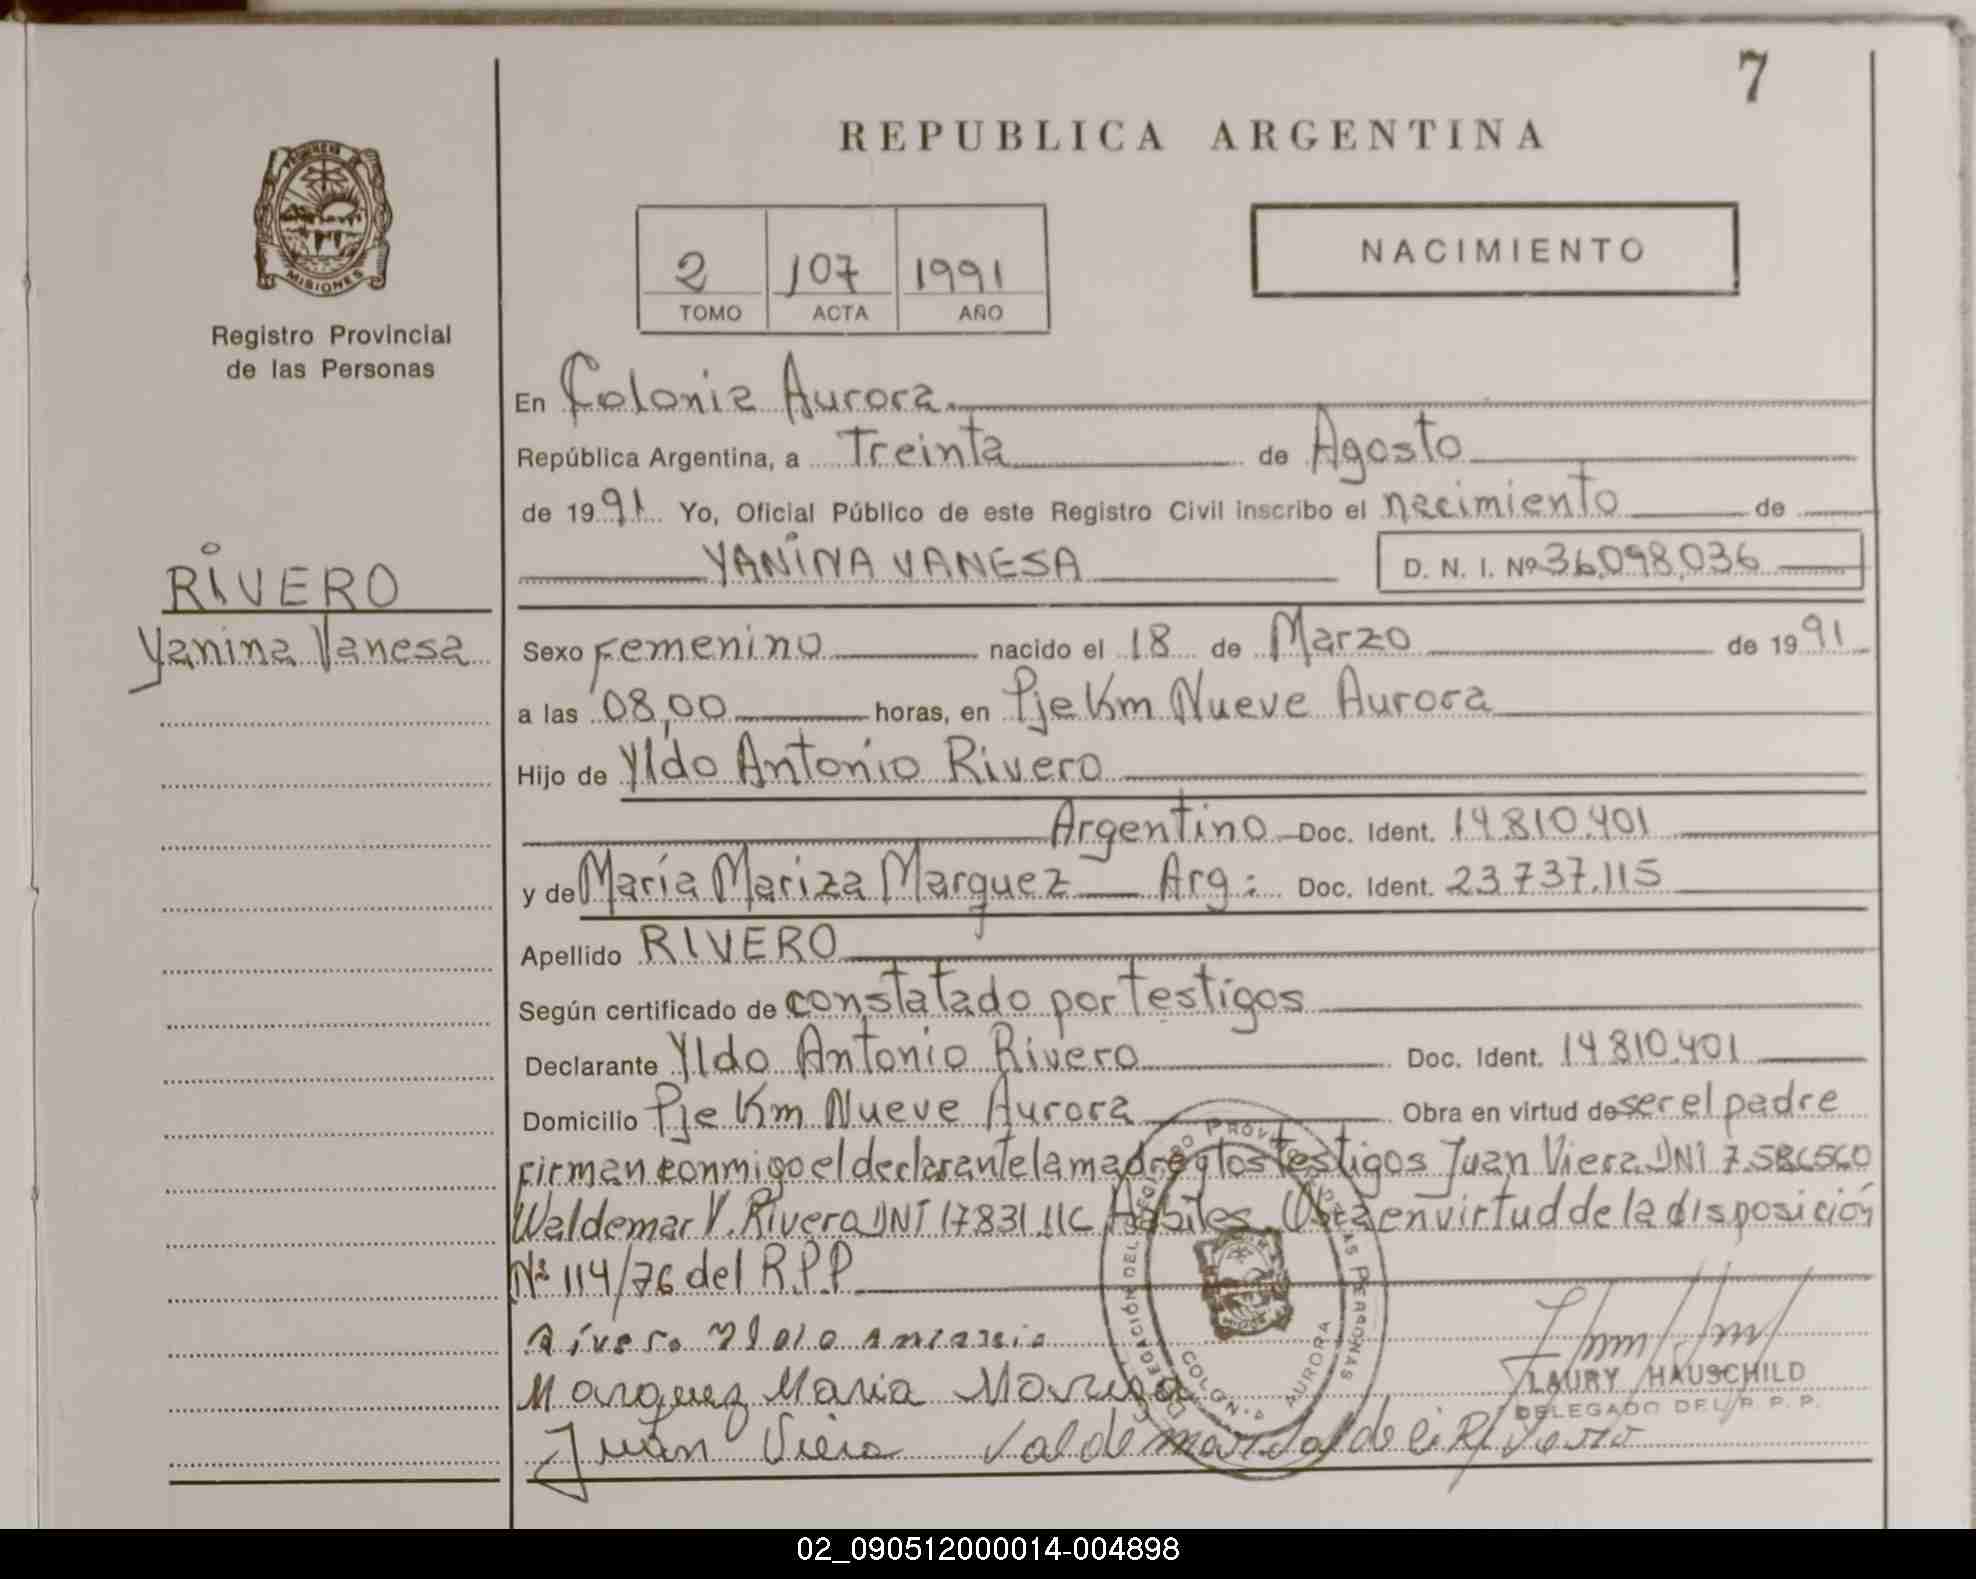 7
REPUBLICA ARGENTINA
PROVINCIA DE MISIONES
Registro Provincial
de las Personas
2 107 1991
TOMO ACTA AÑO
NACIMIENTO
En Colonia Aurora.
República Argentina, a Treinta de Agosto
de 1991 Yo, Oficial Público de este Registro Civil inscribo el nacimiento de
YANINA VANESA D. N. I. Nº 36,098,036
RIVERO
Yanina Vanesa
Sexo Femenino nacido el 18 de Marzo de 1991
a las 08,00 horas, en Pje Km Nueve Aurora
Hijo de Yldo Antonio Rivero
Argentino Doc. Ident. 14.810.401
y de María Mariza Marquez Arg: Doc. Ident. 23.737.115
Apellido RIVERO
Según certificado de constatado por testigos
Declarante Yldo Antonio Rivero Doc. Ident. 14.810.401
Domicilio Pje Km Nueve Aurora Obra en virtud de ser el padre
firman conmigo el declarante la madre y los testigos Juan Viera DNI
Waldemar V. Rivero DNI Habiles. Obra en virtud de la disposición
Nº 114/76 del R.P.P
Rivero Yldo Antonio
Marquez Maria Mariza
Juan Viera Valdemar
LAURY HAUSCHILD
DELEGADO DEL R. P. P.
DELEGACIÓN DEL REGISTRO PROVINCIAL DE LAS PERSONAS
COLONIA AURORA
02_090512000014-004898